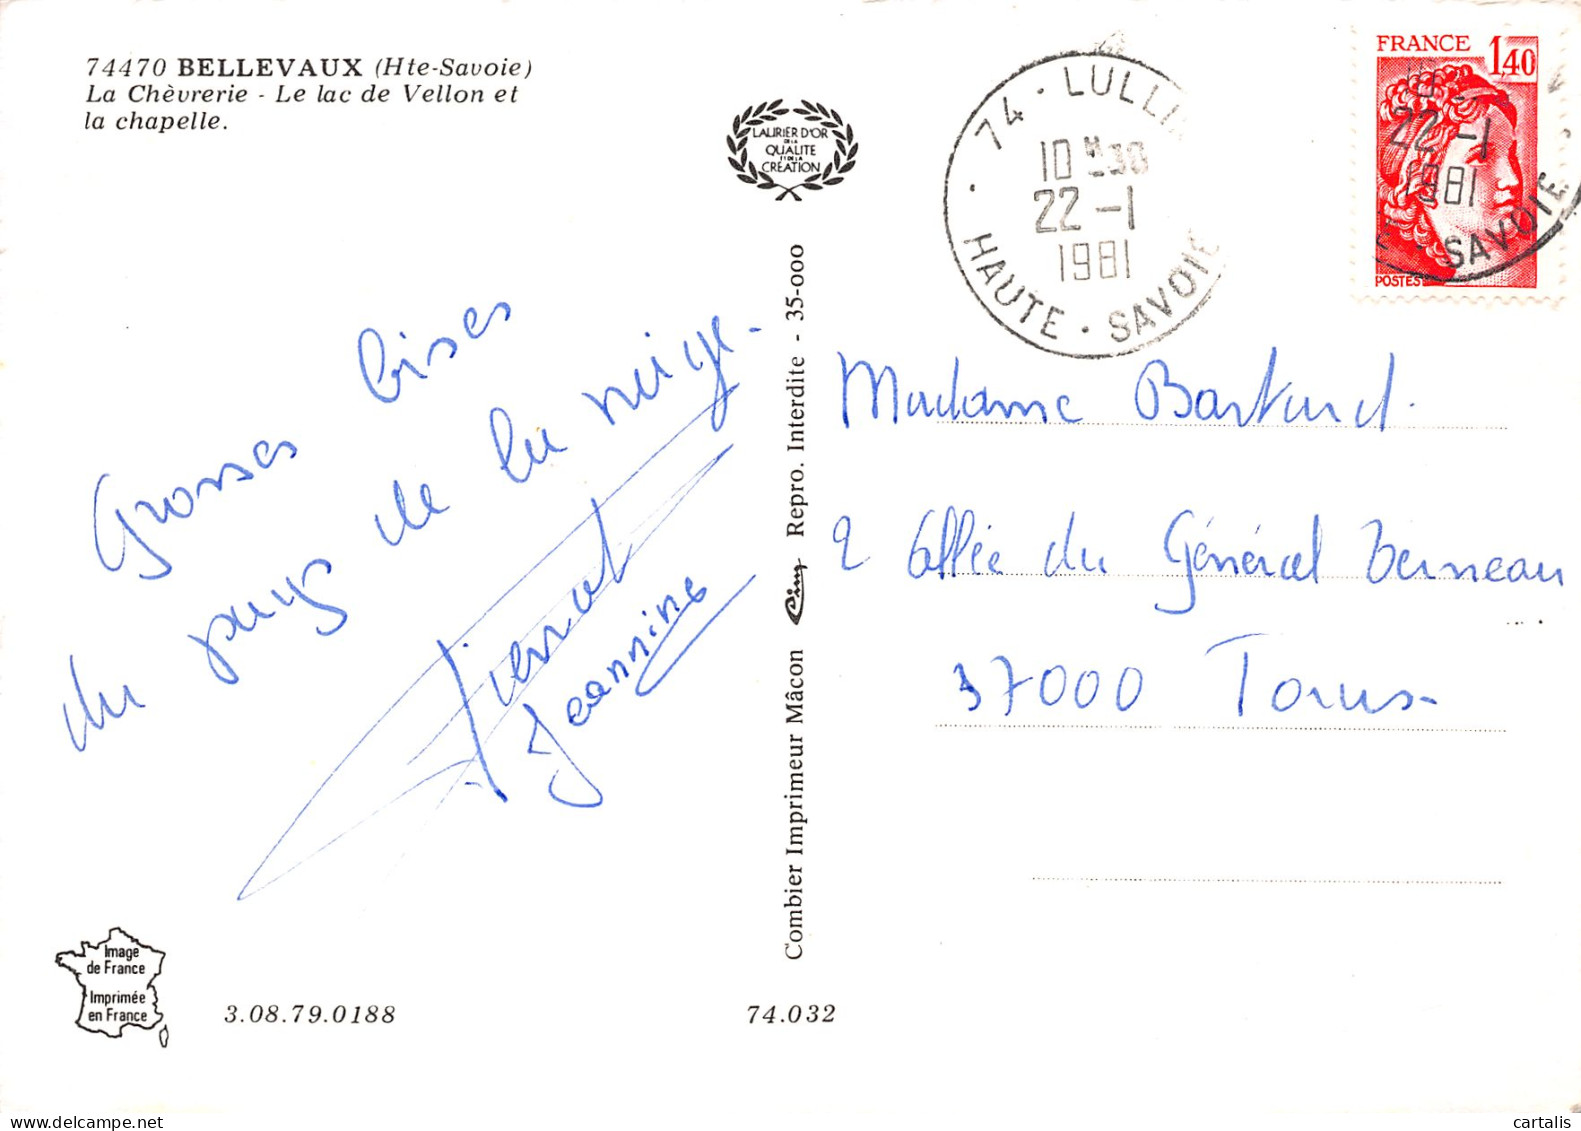 74470 BELLEVAUX (Hte-Savoie)
La Chèvrerie - Le lac de Vellon et
la chapelle.
LAURIER D'OR
DE LA
QUALITE
ET DE LA
CREATION
74 · LULLI
10 H 30
22 -1
1981
HAUTE · SAVOIE
FRANCE 1,40
22 -1
1981
SAVOIE
POSTES
Grosses bises
du pays de la neige.
Pierrot
Jeannine
Combier Imprimeur Mâcon Cim Repro. Interdite - 35-000
Madame
2 Allée du Général
37000 Tours
Image
de France
Imprimée
en France
3.08.79.0188
74.032
cartalis